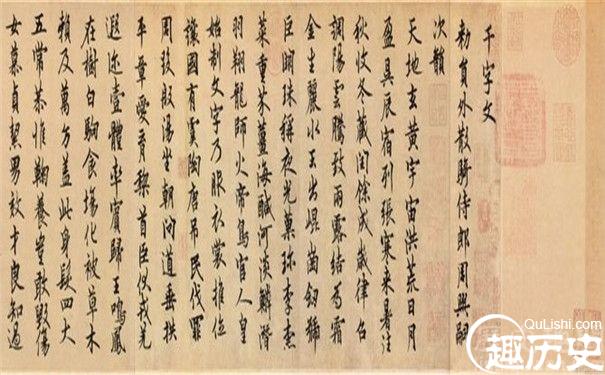 千字文
勑員外散騎侍郎周興嗣
次韻
天地玄黃宇宙洪荒日月
盈昃辰宿列張寒来暑往
秋收冬藏閏餘成歲律召
調陽雲騰致雨露結為霜
金生麗水玉出崐崗劍號
巨闕珠稱夜光菓珎李柰
菜重芥薑海鹹河淡鱗潛
羽翔龍師火帝鳥官人皇
始制文字乃服衣裳推位
讓國有虞陶唐吊民伐罪
周發殷湯坐朝問道垂拱
平章愛育黎首臣伏戎羌
遐迩壹體率賓歸王鳴鳳
在樹白駒食場化被草木
賴及萬方蓋此身髮四大
五常恭惟鞠養豈敢毀傷
女慕貞絜男效才良知過
QuLishi.com
趣历史